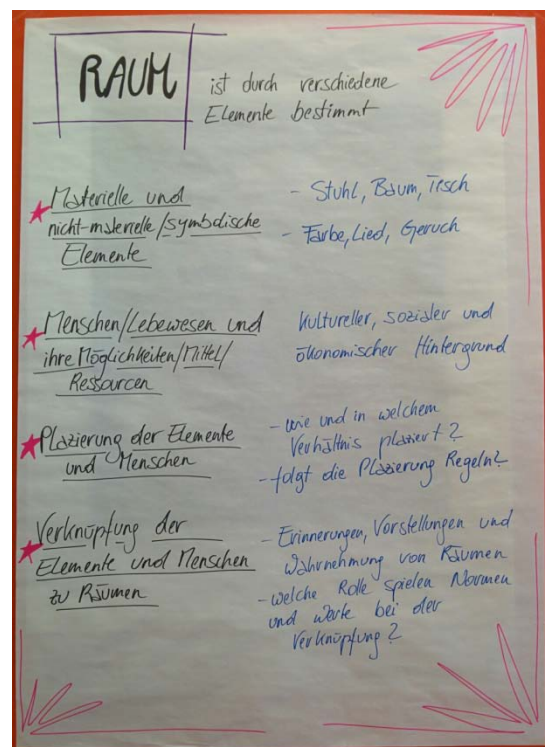 RAUM ist durch verschiedene
Elemente bestimmt
Materielle und
nicht-materielle/symbolische
Elemente
- Stuhl, Baum, Tisch
- Farbe, Lied, Geruch
Menschen/Lebewesen und
ihre Möglichkeiten/Mittel/
Ressourcen
Kultureller, sozialer und
ökonomischer Hintergrund
Plazierung der Elemente
und Menschen
- wie und in welchem
Verhältnis plaziert?
- folgt die Plazierung Regeln?
Verknüpfung der
Elemente und Menschen
zu Räumen
- Erinnerungen, Vorstellungen und
Wahrnehmung von Räumen
- welche Rolle spielen Normen
und Werte bei der
Verknüpfung?